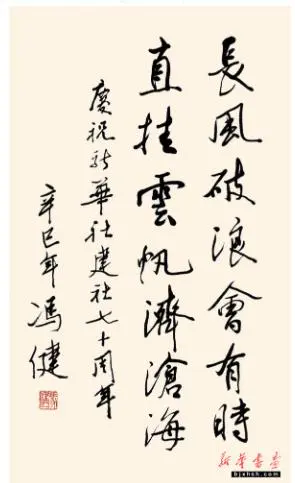 長風破浪會有時
直挂雲帆濟滄海
慶祝新華社建社七十周年
辛巳年 馮健
新华书画
bjxhsh.com